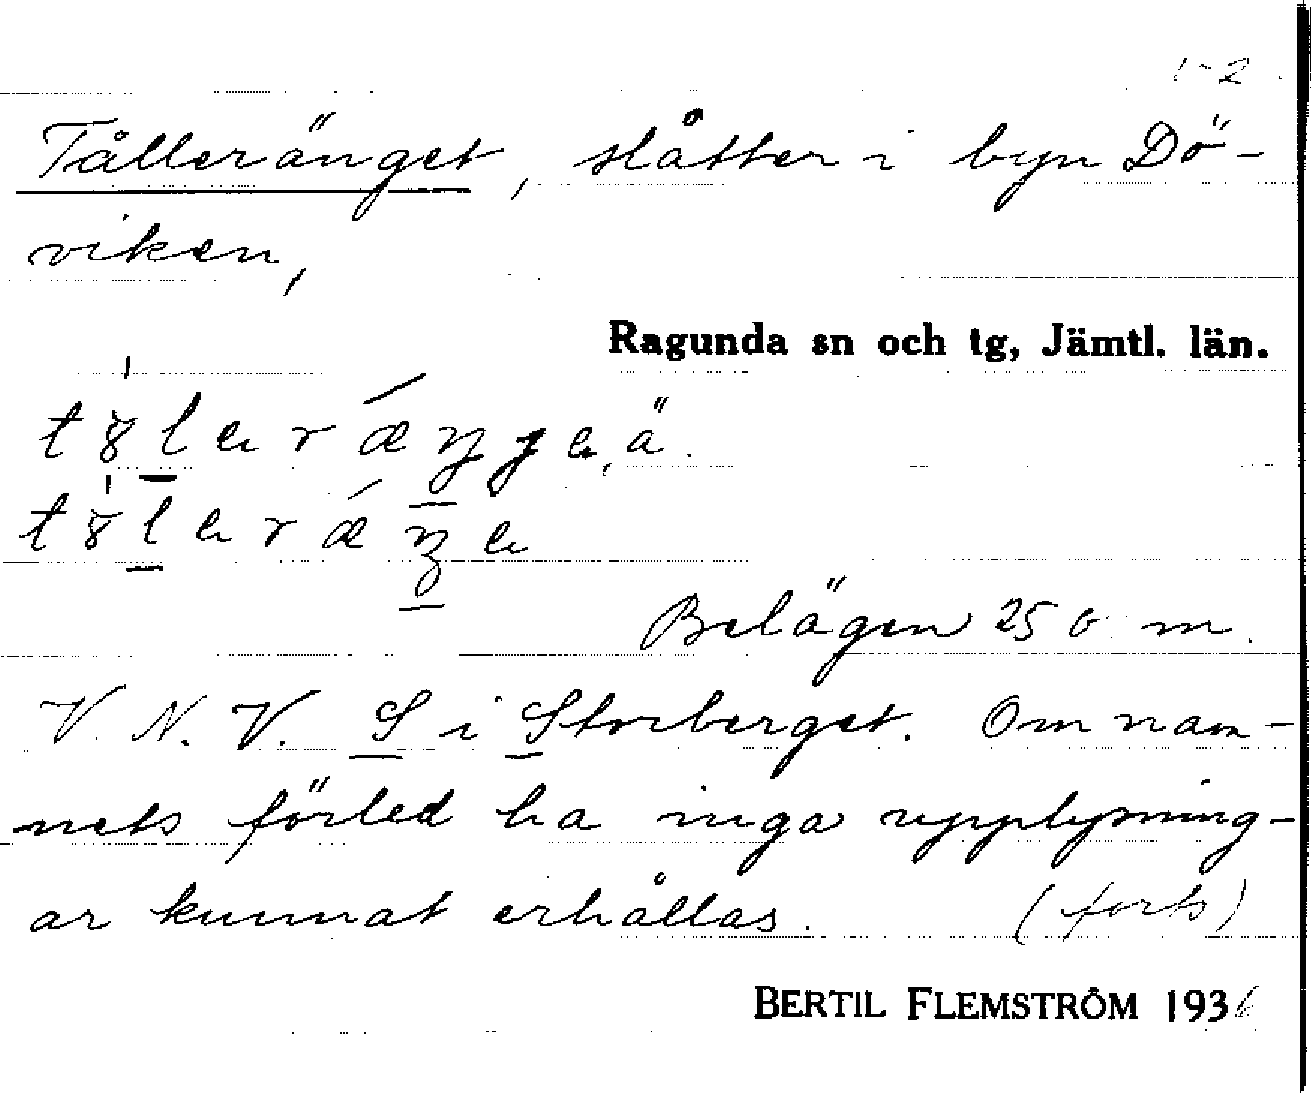 1-2.
Tålleränget, slåtter i byn Dö-
viken,
Ragunda sn och tg, Jämtl. län.
Belägen 250 m.
V. N. V. S i Storberget. Om nam-
nets förled ha inga upplysning-
ar kunnat erhållas. (forts)
BERTIL FLEMSTRÖM 1936